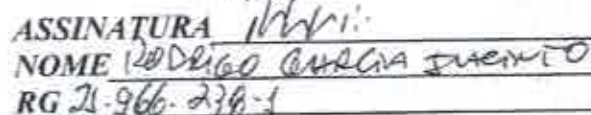 ASSINATURA
NOME RODRIGO GARCIA JACINTO
RG 21.966.238-1